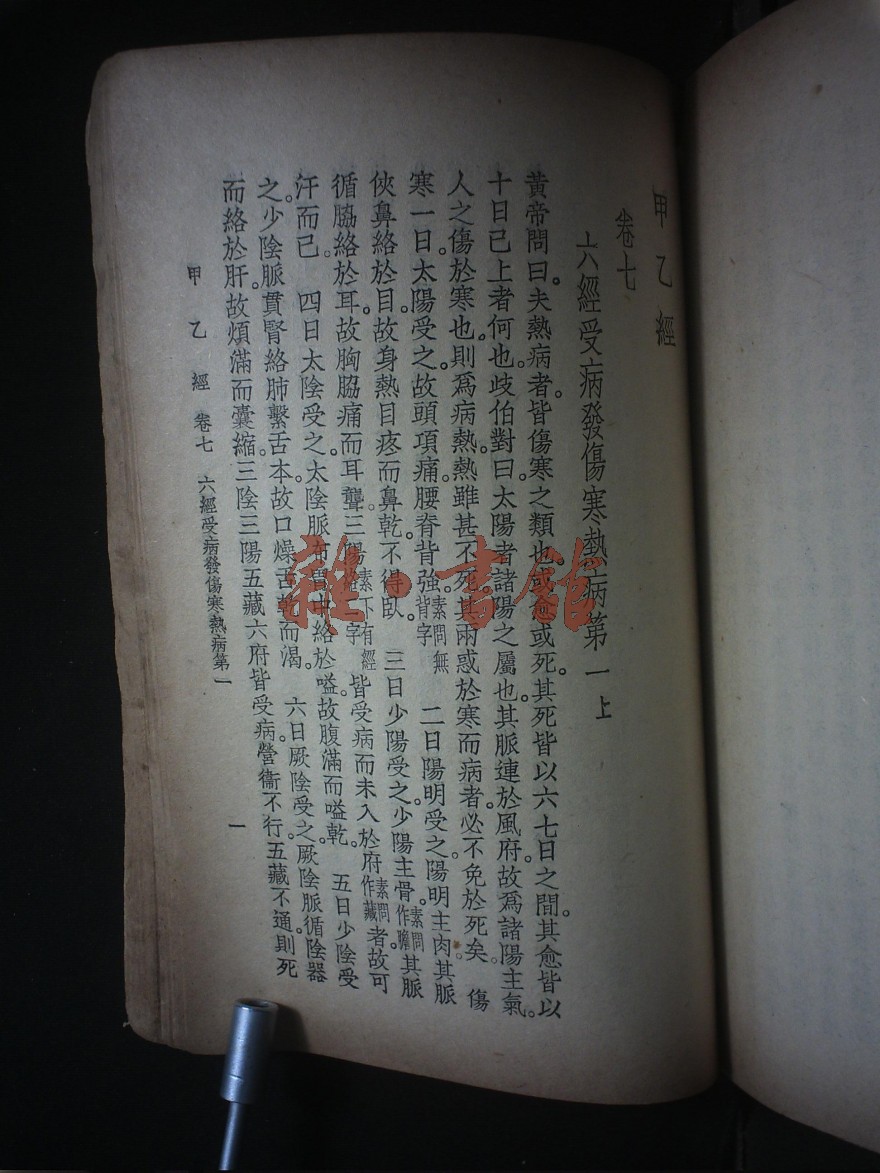 甲乙經
卷七
六經受病發傷寒熱病第一上
黃帝問曰。夫熱病者。皆傷寒之類也。或愈或死。其死皆以六七日之間。其愈皆以
十日已上者何也。歧伯對曰。太陽者。諸陽之屬也。其脈連於風府。故爲諸陽主氣。
人之傷於寒也。則爲病熱。熱雖甚不死。其兩感於寒而病者。必不免於死矣。 傷
寒一日。太陽受之。故頭項痛。腰脊背強。素問無背字 二日陽明受之。陽明主肉。其脈
俠鼻絡於目。故身熱目疼而鼻乾。不得臥。 三日少陽受之。少陽主骨。素問作膽其脈
循脇絡於耳。故胸脇痛而耳聾。三陽素下有經絡字皆受病而未入於府素問作藏者。故可
汗而已。 四日太陰受之。太陰脈布胃中絡於嗌。故腹滿而嗌乾。 五日少陰受
之。少陰脈貫腎絡肺繫舌本。故口燥舌乾而渴。 六日厥陰受之。厥陰脈循陰器
而絡於肝。故煩滿而囊縮。三陰三陽五藏六府皆受病。營衞不行。五藏不通。則死
甲乙經 卷七 六經受病發傷寒熱病第一
一
雜·書館